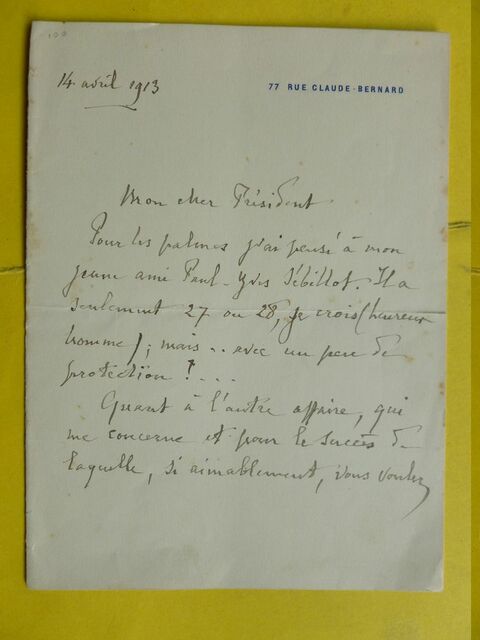 100
14 avril 1913
77 RUE CLAUDE-BERNARD
Mon cher Président
Pour les palmes j'ai pensé à mon
jeune ami Paul-Yves Sébillot. Il a
seulement 27 ou 28, je crois (heureux
homme) ; mais .. avec un peu de
protection ? ...
Quant à l'autre affaire, qui
me concerne et pour le succès de
laquelle, si aimablement, vous voulez